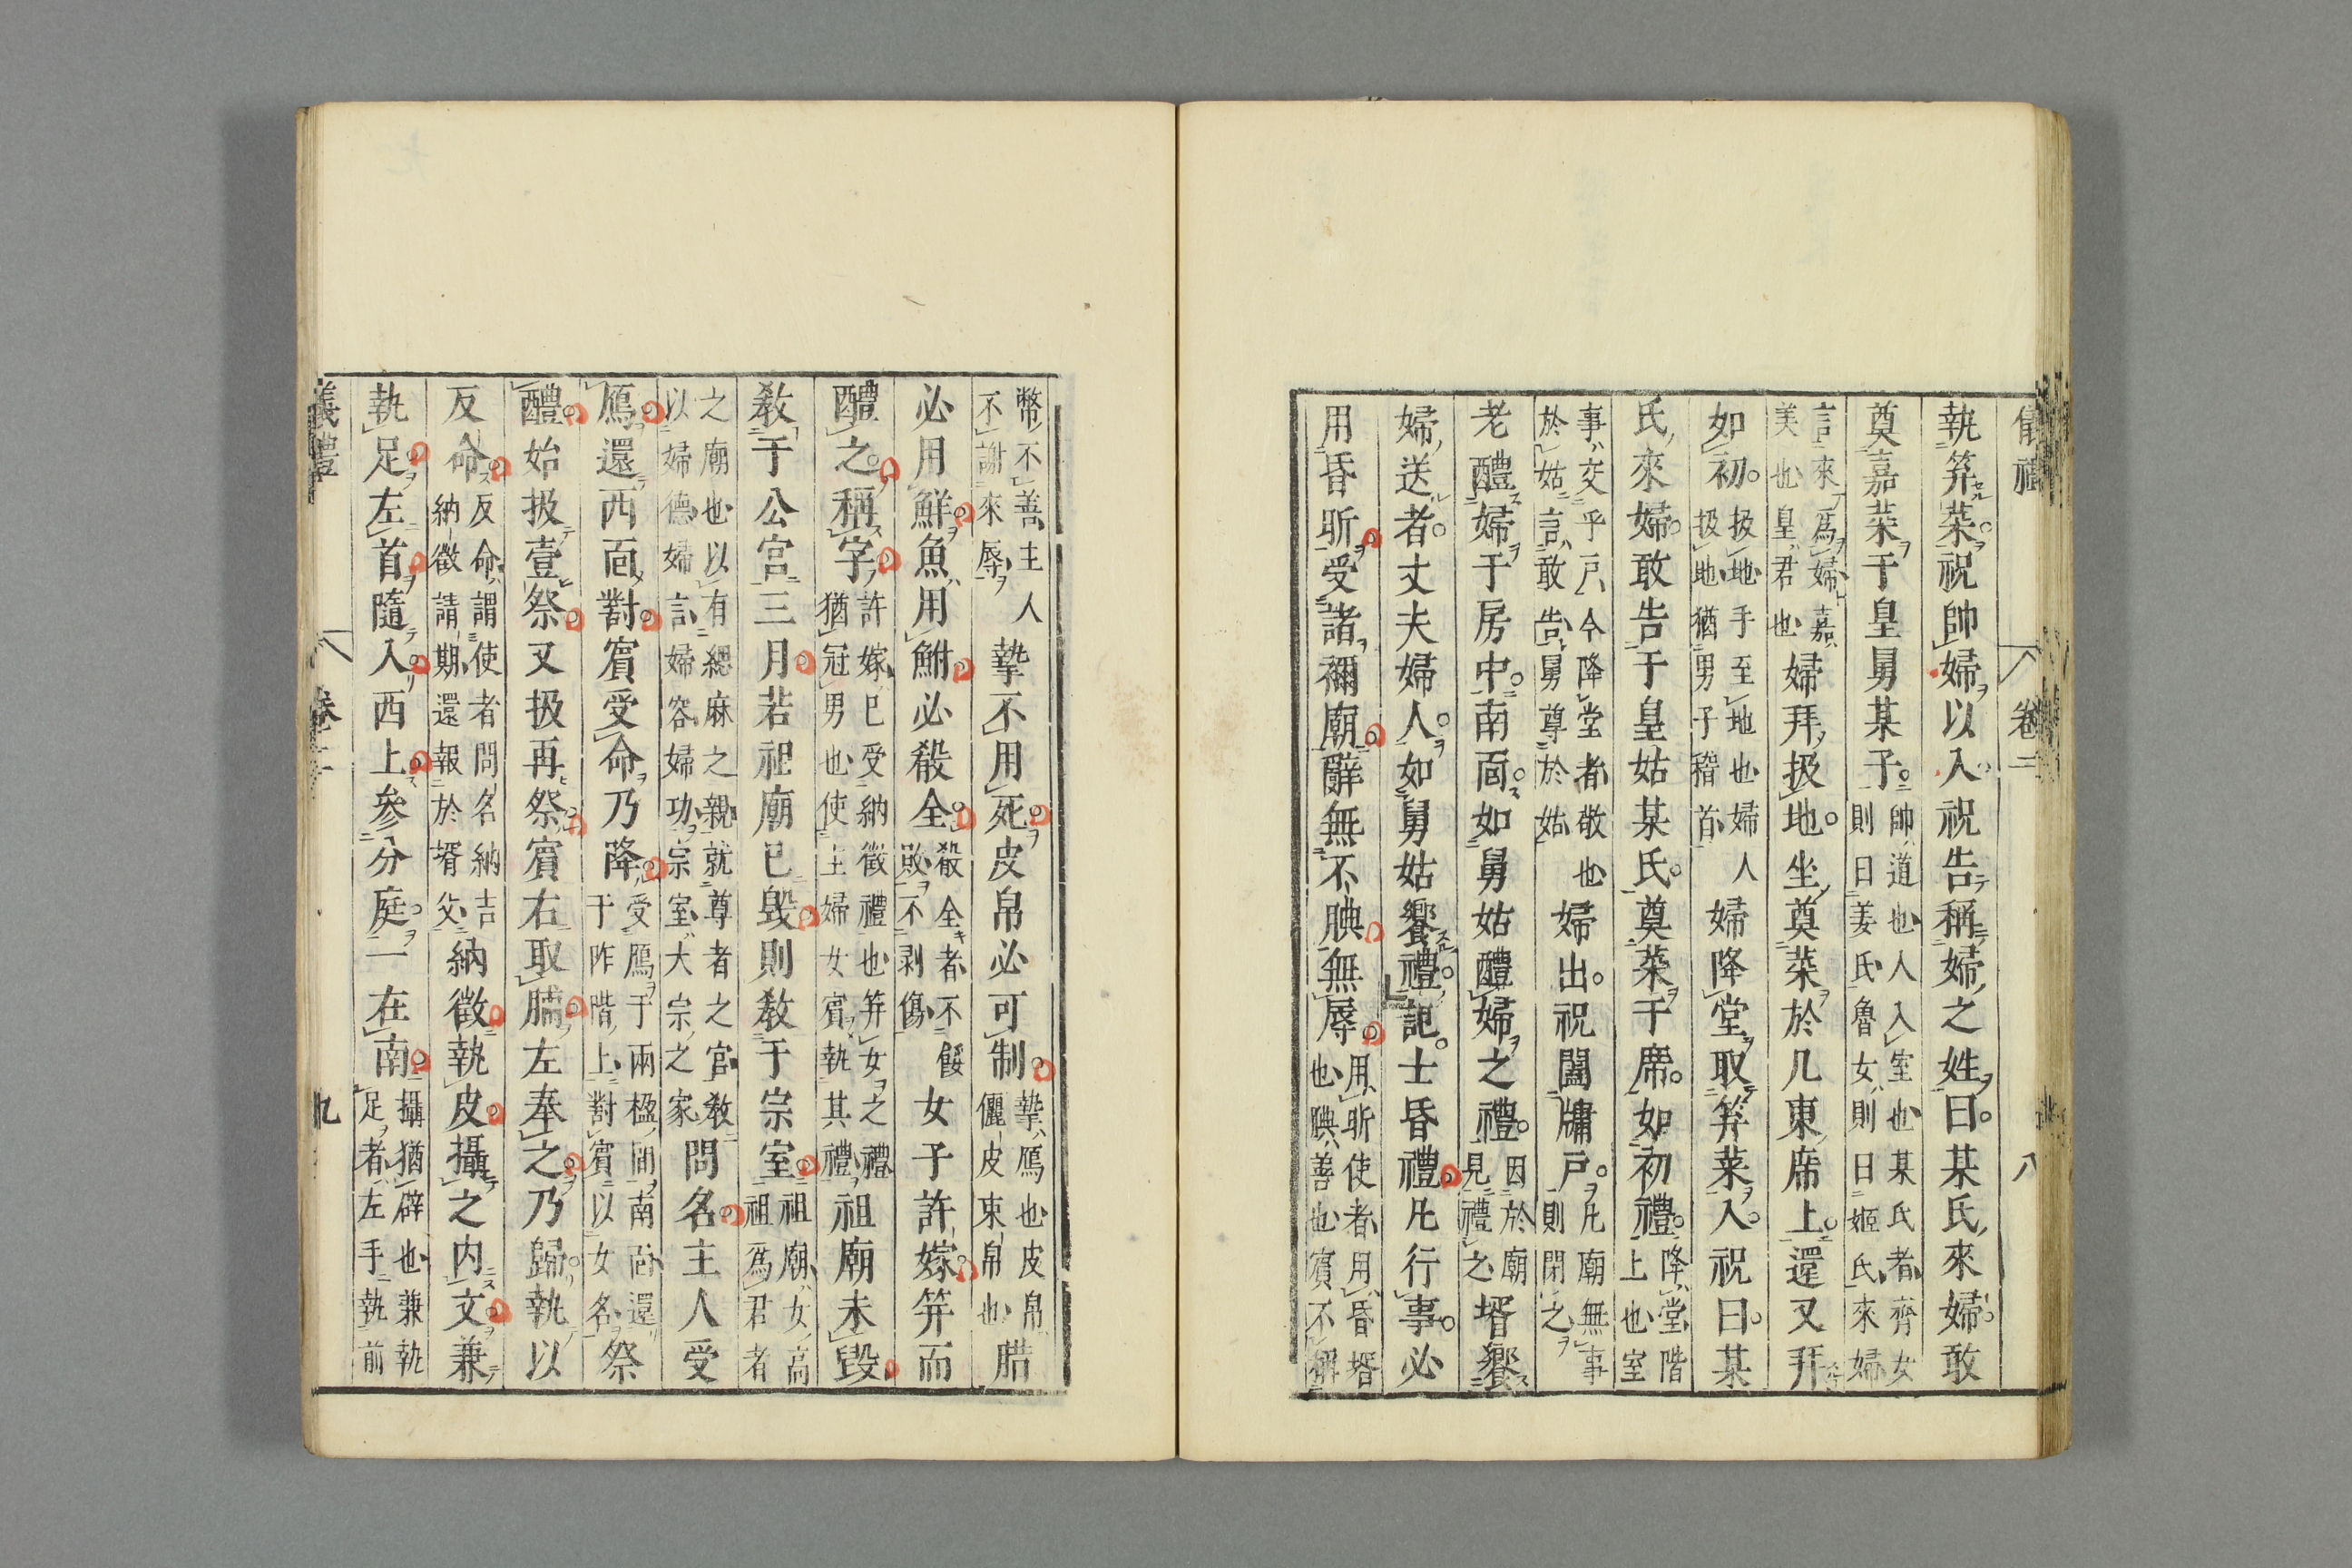 儀禮 卷二 八
執笲菜祝帥婦以入祝告稱婦之姓曰某氏來婦敢
奠嘉菜于皇舅某子帥道也人入室也某氏者齊女則曰姜氏魯女則曰姬氏來婦
言來爲婦嘉美也皇君也婦拜扱地坐奠菜於几東席上還又拜
如初扱地手至地也婦人扱地猶男子稽首婦降堂取笲菜入祝曰某
氏來婦敢告于皇姑某氏奠菜于席如初禮降堂階上也室
事交乎戶今降堂者敬也於姑言敢告舅尊於姑婦出祝闔牖戶凡廟無事則閉之
老醴婦于房中南面如舅姑醴婦之禮因於廟見禮之壻饗
婦送者丈夫婦人如舅姑饗禮記士昏禮凡行事必
用昏昕受諸禰廟辭無不腆無辱用昕使者用昏壻也腆善也賓不稱
幣不善主人不謝來辱摯不用死皮帛必可制摯鴈也皮帛儷皮束帛也腊
必用鮮魚用鮒必殺全殺全者不餒敗不剥傷女子許嫁笄而
醴之稱字許嫁已受納徵禮也笄女之禮猶冠男也使主婦女賓執其禮祖廟未毀
教于公宮三月若祖廟已毀則教于宗室祖廟女高祖爲君者
之廟也以有緦麻之親就尊者之宮教以婦德婦言婦容婦功宗室大宗之家問名主人受
鴈還西面對賓受命乃降受鴈于兩楹間南面還于阼階上對賓以女名祭
醴始扱壹祭又扱再祭賓右取脯左奉之乃歸執以
反命反命謂使者問名納吉納徵請期還報於壻父納徵執皮攝之内文兼
執足左首隨入西上參分庭一在南攝猶辟也兼執足者左手執前
儀禮 卷二 九